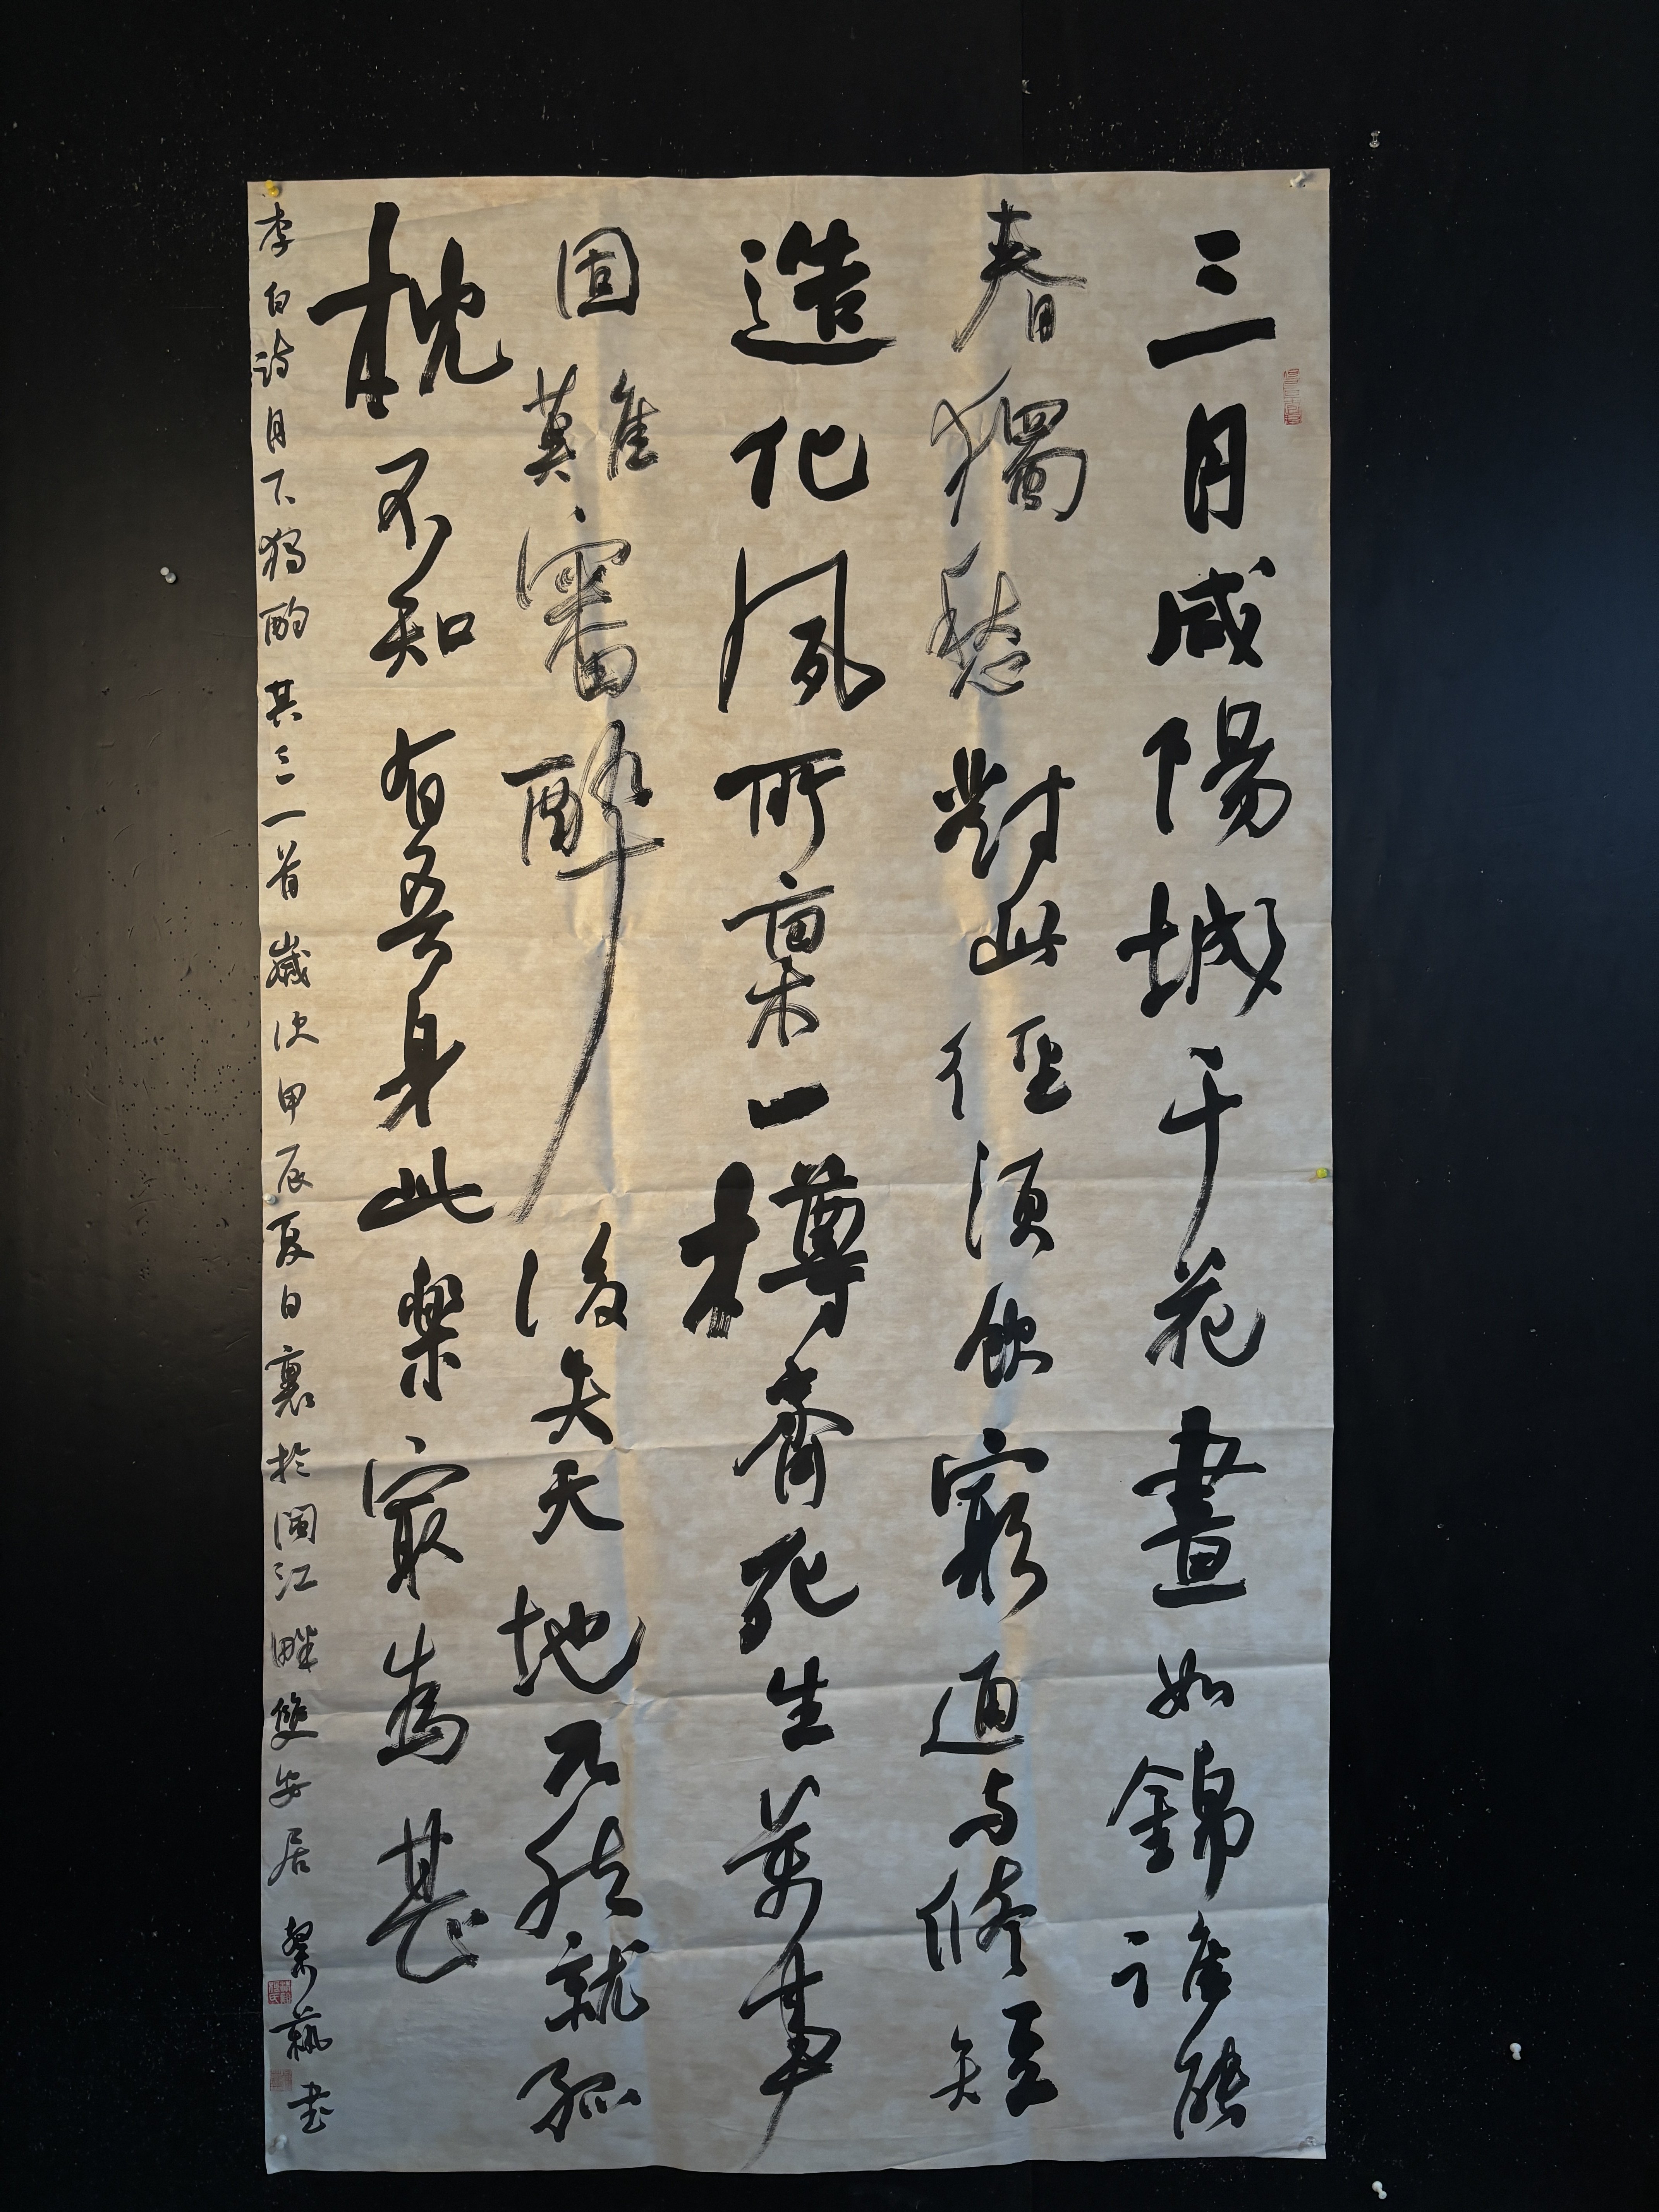 三月咸陽城千花晝如錦誰能
春獨愁對此徑須飲窮通与修短
造化夙所稟一樽齊死生萬事
固難審醉後失天地兀然就孤
枕不知有吾身此樂最為甚
李白詩月下獨酌其三一首歲次甲辰夏日裏於閩江畔雙安居 藝書